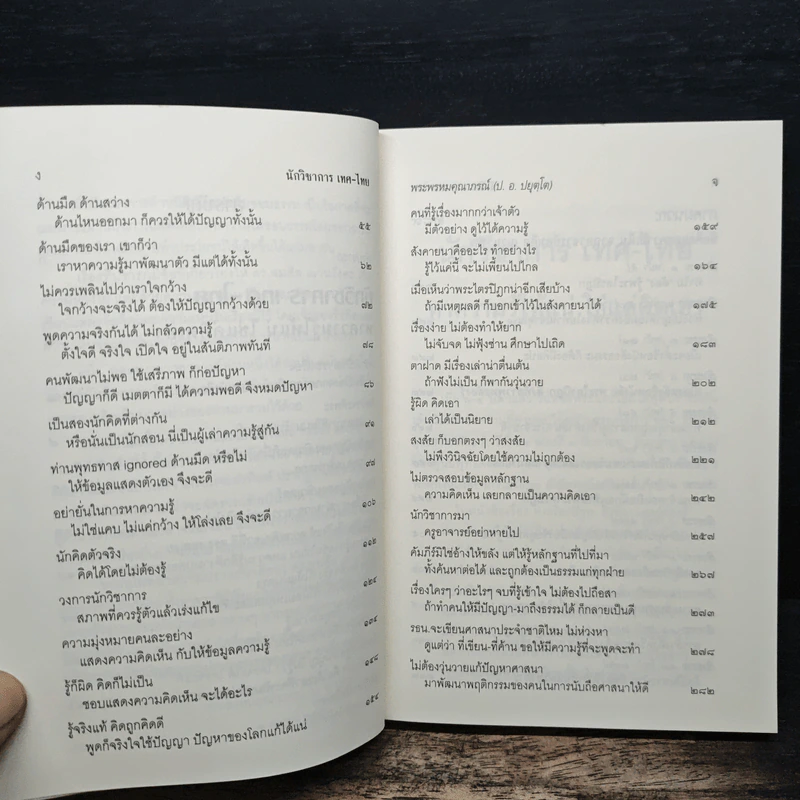 ง นักวิชาการ เทศ-ไทย
ด้านมืด ด้านสว่าง
ด้านไหนออกมา ก็ควรให้ได้ปัญญาทั้งนั้น ๕๕
ด้านมืดของเรา เขาก็ว่า
เราหาความรู้มาพัฒนาตัว มีแต่ได้ทั้งนั้น ๖๒
ไม่ควรเพลินไปว่าเราใจกว้าง
ใจกว้างจะจริงได้ ต้องให้ปัญญากว้างด้วย ๗๒
พูดความจริงกันได้ ไม่กลัวความรู้
ตั้งใจดี จริงใจ เปิดใจ อยู่ในสันติภาพทันที ๗๘
คนพัฒนาไม่พอ ใช้เสรีภาพ ก็ก่อปัญหา
ปัญญาก็ดี เมตตาก็มี ได้ความพอดี จึงหมดปัญหา ๘๖
เป็นสองนักคิดที่ต่างกัน
หรือนั่นเป็นนักสอน นี่เป็นผู้เล่าความรู้สู่กัน ๙๑
ท่านพุทธทาส ignored ด้านมืด หรือไม่
ให้ข้อมูลแสดงตัวเอง จึงจะดี ๙๗
อย่ายั่นในการหาความรู้
ไม่ใช่แคบ ไม่แค่กว้าง ให้โล่งเลย จึงจะดี ๑๐๖
นักคิดตัวจริง
คิดได้โดยไม่ต้องรู้ ๑๑๒
วงการนักวิชาการ
สภาพที่ควรรู้ตัวแล้วเร่งแก้ไข ๑๒๔
ความมุ่งหมายคนละอย่าง
แสดงความคิดเห็น กับให้ข้อมูลความรู้ ๑๓๔
รู้ก็ผิด คิดก็ไม่เป็น
ชอบแสดงความคิดเห็น จะได้อะไร ๑๔๘
รู้จริงแท้ คิดถูกคิดดี
พูดก็จริงใจใช้ปัญญา ปัญหาของโลกแก้ได้แน่ ๑๕๔
พระพรหมคุณาภรณ์ (ป. อ. ปยุตฺโต) จ
คนที่รู้เรื่องมากกว่าเจ้าตัว
มีตัวอย่าง ดูไว้ได้ความรู้ ๑๕๙
สังคายนาคืออะไร ทำอย่างไร
รู้ไว้แค่นี้ จะไม่เพี้ยนไปไกล ๑๖๔
เมื่อเห็นว่าพระไตรปิฎกน่าฉีกเสียบ้าง
ถ้ามีเหตุผลดี ก็บอกเข้าไว้ในสังคายนาได้ ๑๗๕
เรื่องง่าย ไม่ต้องทำให้ยาก
ไม่จับจด ไม่ฟุ้งซ่าน ศึกษาไปเถิด ๑๘๓
ตาฝาด มีเรื่องเล่าน่าตื่นเต้น
ถ้าฟังไม่เป็น ก็พากันวุ่นวาย ๒๐๒
รู้ผิด คิดเอา
เล่าได้เป็นนิยาย ๒๑๒
สงสัย ก็บอกตรงๆ ว่าสงสัย
ไม่พึงวินิจฉัยโดยใช้ความไม่ถูกต้อง ๒๒๑
ไม่ตรวจสอบข้อมูลหลักฐาน
ความคิดเห็น เลยกลายเป็นความคิดเอา ๒๔๒
นักวิชาการมา
ครูอาจารย์อย่าหายไป ๒๕๗
คัมภีร์มิใช่อ้างให้ขลัง แต่ให้รู้หลักฐานที่ไปที่มา
ทั้งค้นหาต่อได้ และถูกต้องเป็นธรรมแก่ทุกฝ่าย ๒๖๗
เรื่องใครๆ ว่าอะไรๆ จบที่รู้เข้าใจ ไม่ต้องไปถือสา
ถ้าทำคนให้มีปัญญา-มาถึงธรรมได้ ก็กลายเป็นดี ๒๗๓
รธน.จะเขียนศาสนาประจำชาติไหม ไม่ห่วงหา
ดูแต่ว่า ที่เขียน-ที่ค้าน ขอให้มีความรู้ที่จะพูดจะทำ ๒๗๘
ไม่ต้องวุ่นวายแก้ปัญหาศาสนา
มาพัฒนาพฤติกรรมของคนในการนับถือศาสนาให้ดี ๒๘๒